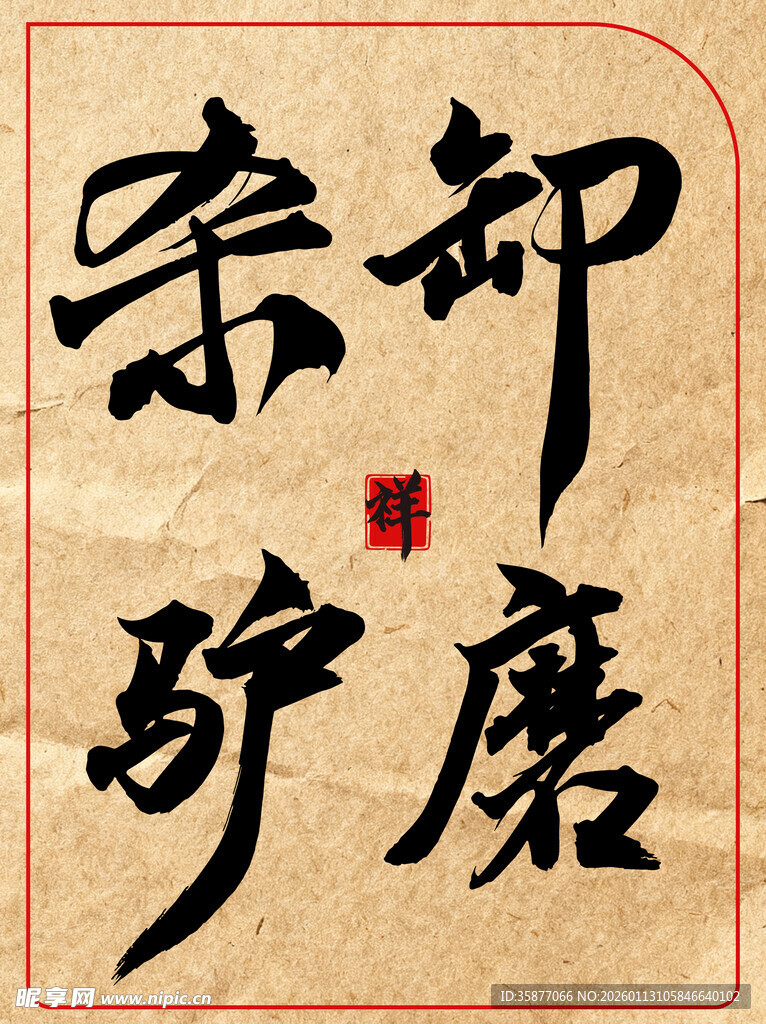 卸磨
杀驴
祥
昵享网 www.nipic.cn
ID:35877066 NO:20260113105846640102